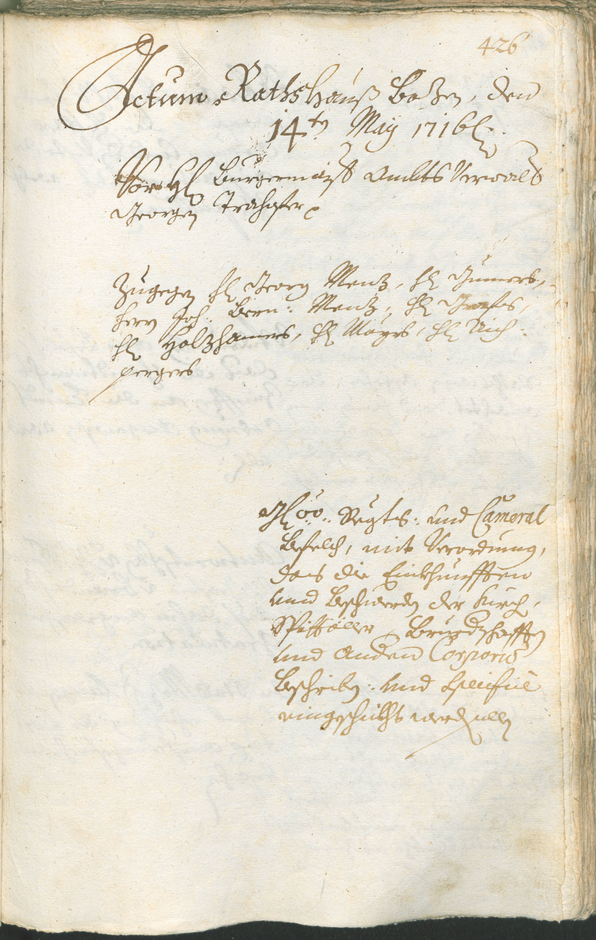 426
Actum Rathshauß Bozen, den
14ten May 1716
Vor Hl Burgermaister Ambts Verwalter
Georgen Trahofer
Zugegen Hl Georg Menz, Hl Gumers,
herr Joh: Bern: Menz, Hl Graf,
Hl Holzhamers, Hl Mayrs, Hl Aich-
pergers
Regts: und Cameral
Befelch, mit Verordnung,
das die Einkhunfften
und Beschwerden der Kirch,
Spittäller Bruederschafften
und anderen Corporis
Beschriben: und Specifice
eingeschickht werden sollen